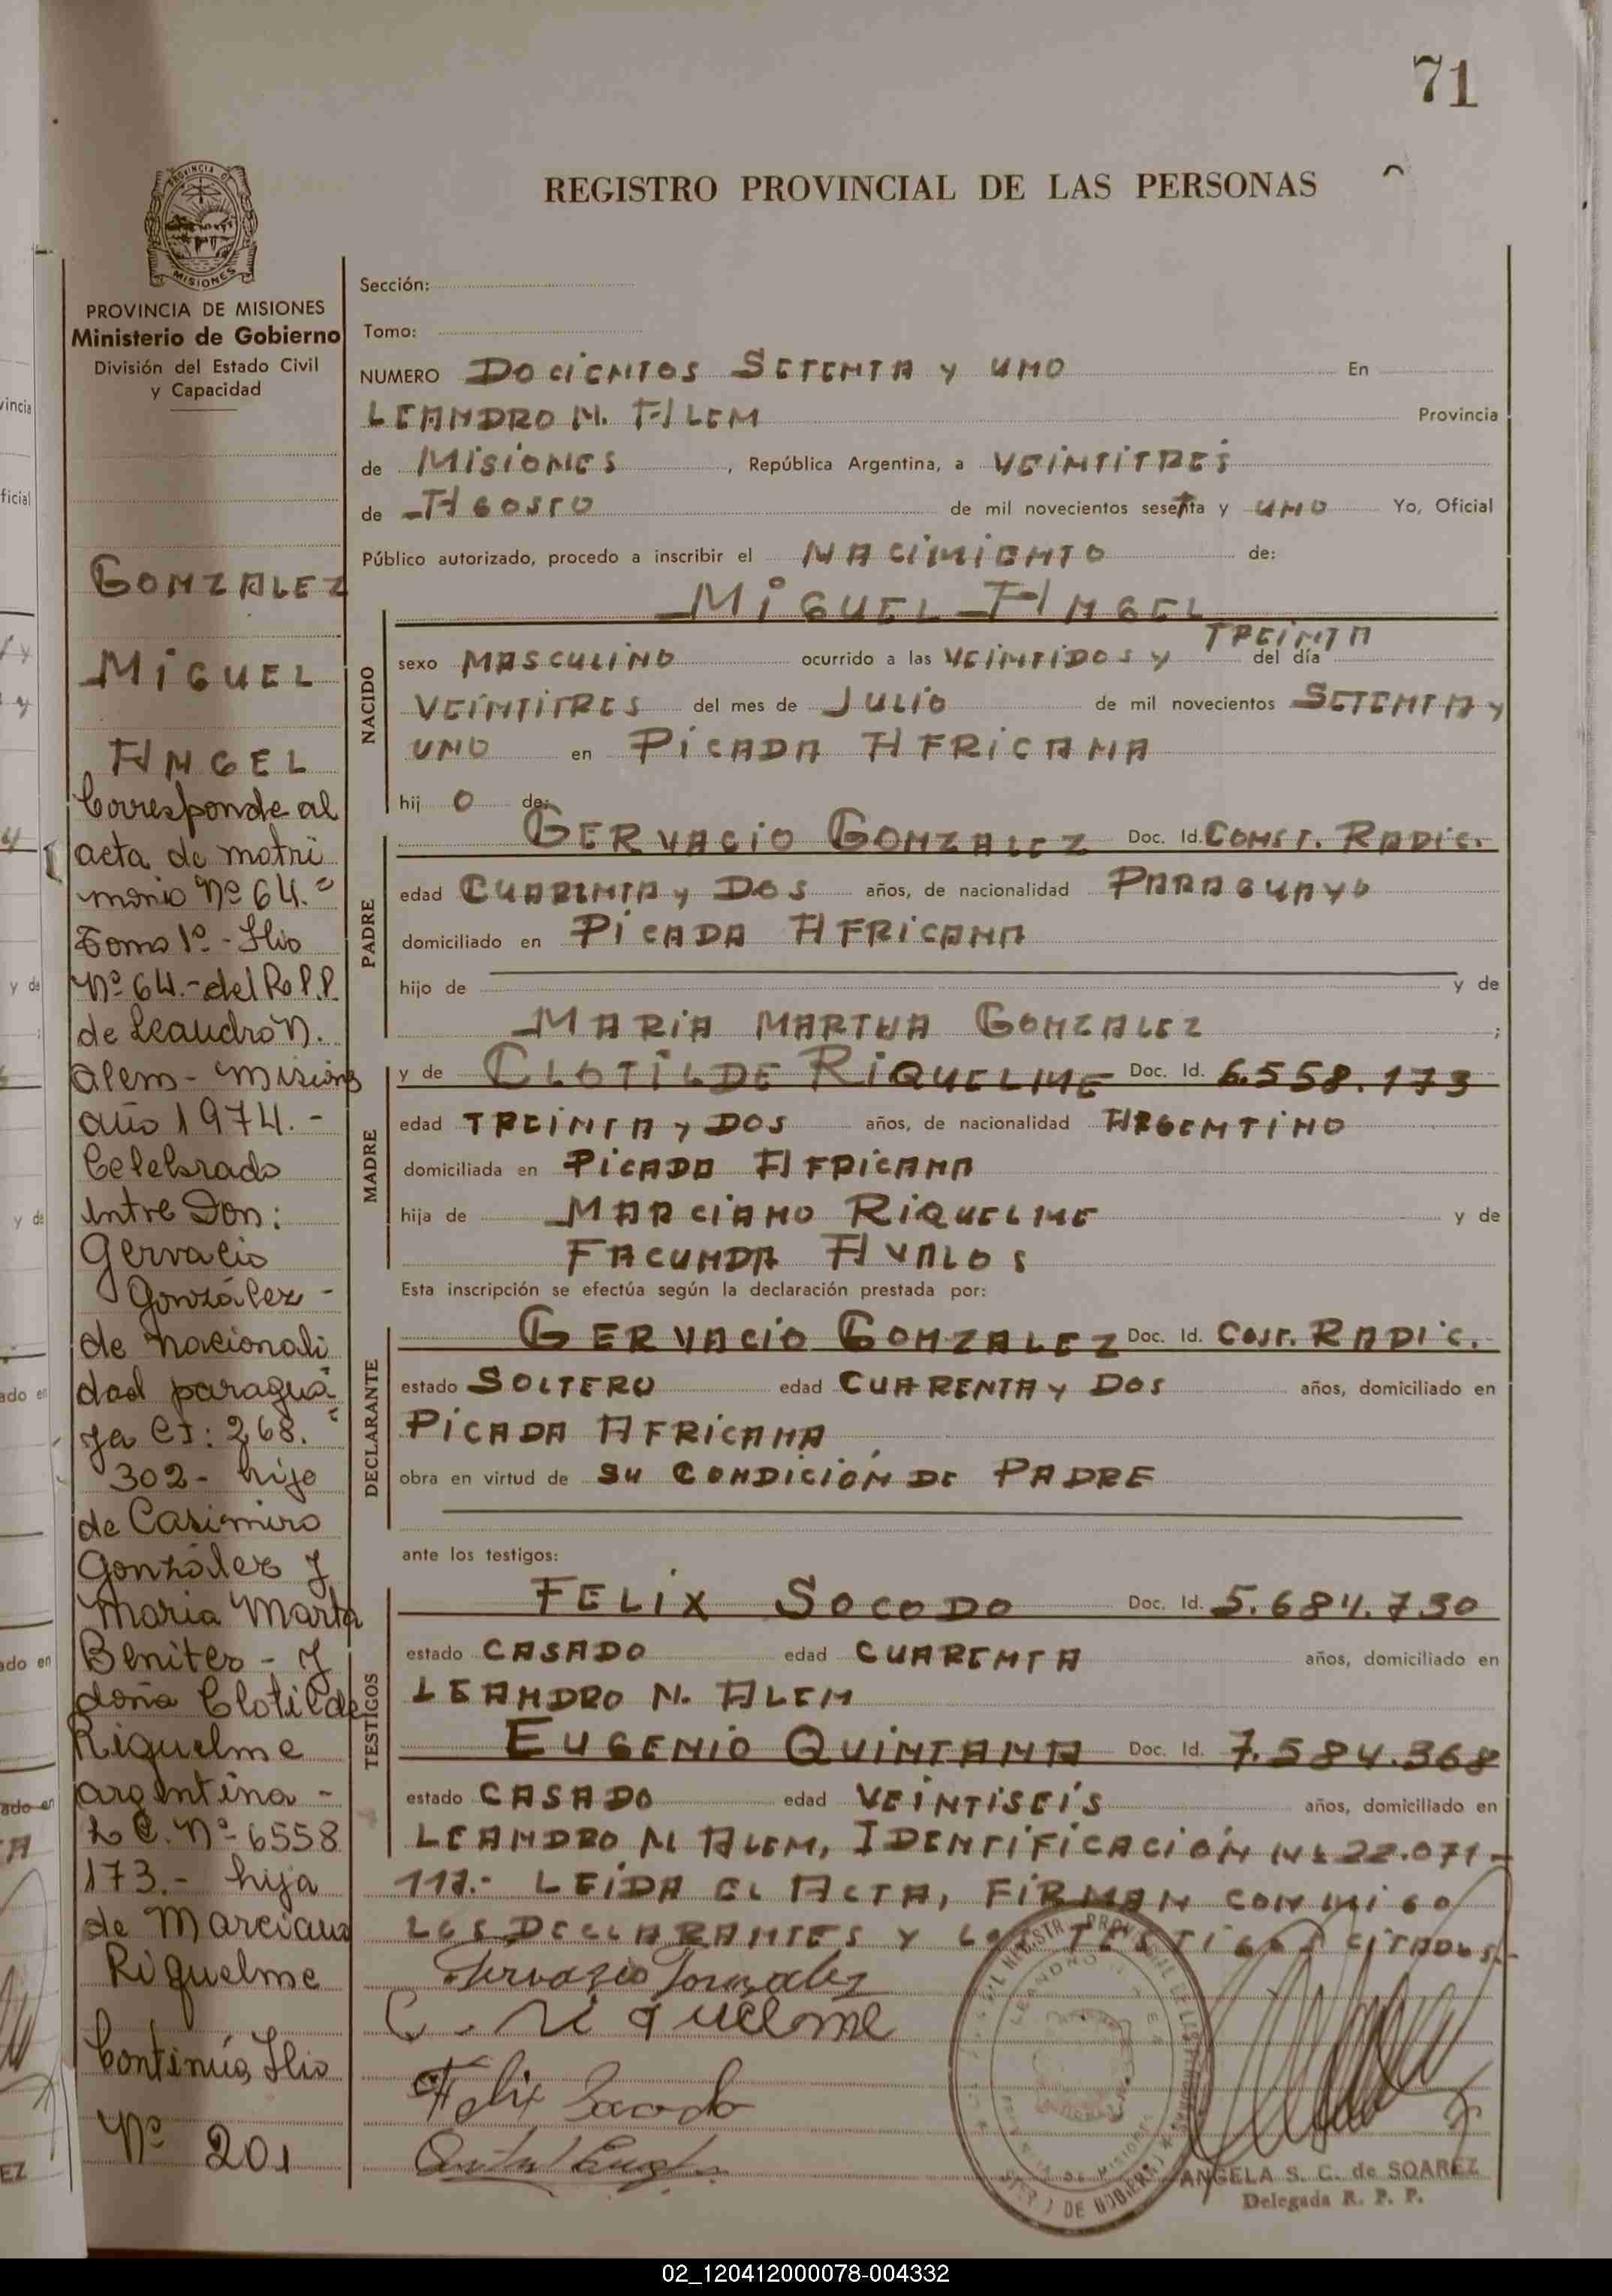 71
REGISTRO PROVINCIAL DE LAS PERSONAS
PROVINCIA DE MISIONES
Ministerio de Gobierno
División del Estado Civil
y Capacidad
GONZALEZ
MIGUEL
ANGEL
Corresponde al
acta de matri
monio Nº 64.=
Tomo 1º - Flio
Nº 64.- del R.P.P.
de Leandro N.
Alem - Misiones
año 1974.-
Celebrado
entre Don:
Gervacio
González -
de nacionali
dad paragua
ya CI: 268.
302- hijo
de Casimiro
González y
Maria Marta
Benitez - y
doña Clotilde
Riquelme
argentina -
L C. Nº 6558
173.- hija
de Marciano
Riquelme
Continúa Flio
Nº 201
Sección:
Tomo:
NUMERO DOCIENTOS SETENTA Y UNO En
LEANDRO N. ALEM Provincia
de MISIONES , República Argentina, a VEINTITRES
de AGOSTO de mil novecientos setenta y UNO Yo, Oficial
Público autorizado, procedo a inscribir el NACIMIENTO de:
MIGUEL ANGEL
NACIDO
sexo MASCULINO ocurrido a las VEINTIDOS Y TREINTA del día
VEINTITRES del mes de JULIO de mil novecientos SETENTA Y
UNO en PICADA AFRICANA
hij O de:
PADRE
GERVACIO GONZALEZ Doc. Id. CONST. RADIC.
edad CUARENTA Y DOS años, de nacionalidad PARAGUAYO
domiciliado en PICADA AFRICANA
hijo de y de
MARIA MARTHA GONZALEZ ;
MADRE
y de CLOTILDE RIQUELME Doc. Id. 6.558.173
edad TREINTA Y DOS años, de nacionalidad ARGENTINO
domiciliada en PICADA AFRICANA
hija de MARCIANO RIQUELME y de
FACUNDA AVALOS
Esta inscripción se efectúa según la declaración prestada por:
DECLARANTE
GERVACIO GONZALEZ Doc. Id. COST. RADIC.
estado SOLTERO edad CUARENTA Y DOS años, domiciliado en
PICADA AFRICANA
obra en virtud de SU CONDICIÓN DE PADRE
ante los testigos:
TESTIGOS
FELIX SOCODO Doc. Id. 5.684.730
estado CASADO edad CUARENTA años, domiciliado en
LEANDRO N. ALEM
EUGENIO QUINTANA Doc. Id. 7.584.368
estado CASADO edad VEINTISEIS años, domiciliado en
LEANDRO N ALEM, IDENTIFICACIÓN Nº 22.071-
117.- LEIDA EL ACTA, FIRMAN CONMIGO
LOS DECLARANTES Y LOS TESTIGOS CITADOS.-
Gervazio Gonzalez
C. Riquelme
Felix Socodo
ANGELA S. C. de SOAREZ
Delegada R. P. P.
02_120412000078-004332